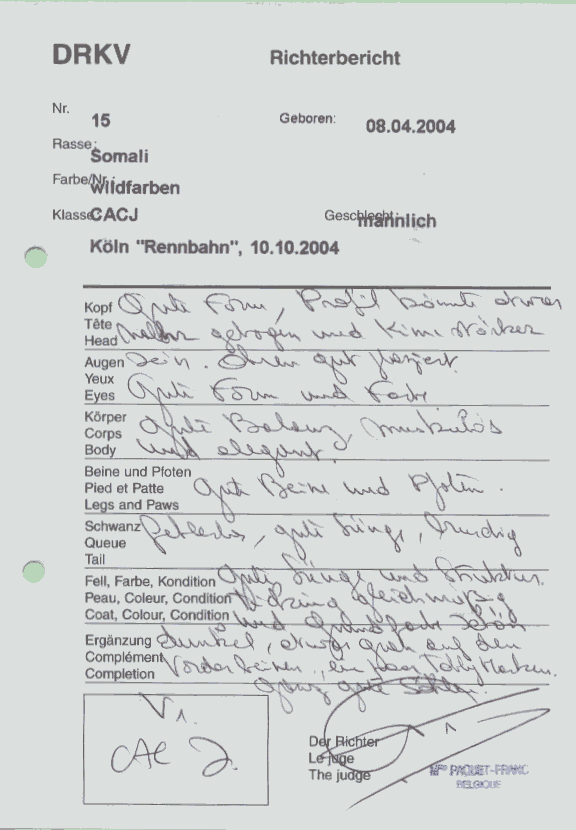 DRKV Richterbericht
Nr. 15 Geboren: 08.04.2004
Rasse: Somali
Farbe/Nr.: wildfarben
Klasse CACJ Geschlecht: männlich
Köln "Rennbahn", 10.10.2004
Kopf Gute Form, Profil könnte etwas
Tête
Head mehr gebogen und Kinn stärker
Augen sein. Ohren gut
Yeux
Eyes Gute Form und Farbe
Körper
Corps Gute Balanz, muskulös
Body und elegant.
Beine und Pfoten
Pied et Patte Gute Beine und Pfoten.
Legs and Paws
Schwanz fehlerlos, gute Länge, buschig
Queue
Tail
Fell, Farbe, Kondition Gute Länge und Struktur.
Peau, Coleur, Condition Ticking gleichmäßig
Coat, Colour, Condition und Grundfarbe schön
Ergänzung dunkel, etwas grau auf den
Complément Vorderbeinen, ein paar
Completion
ganz gute Sohlen.
V1.
CAC J.
Der Richter
Le juge
The judge
Mme PAQUET-FRANC
BELGIQUE